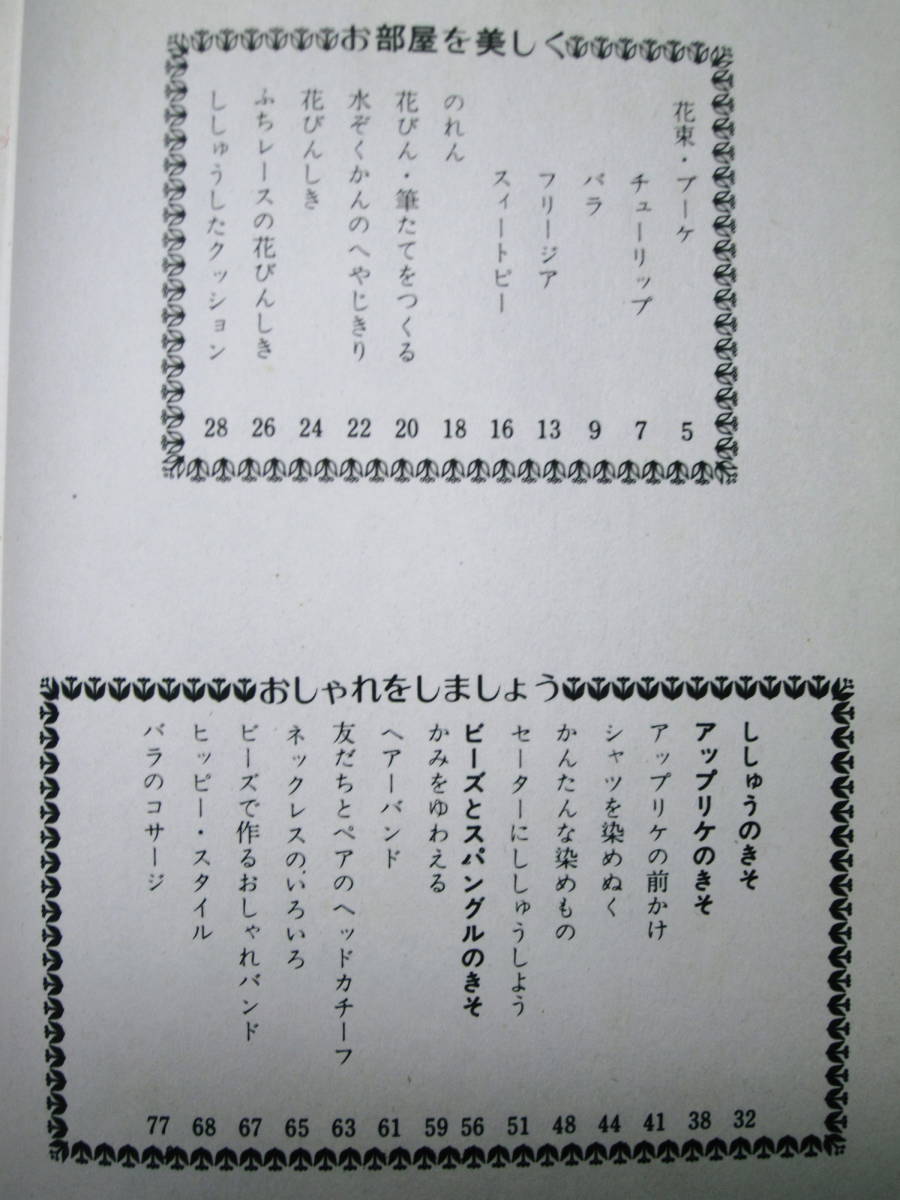 お部屋を美しく
花束・ブーケ 5
チューリップ 7
バラ 9
フリージア 13
スィートピー 16
のれん 18
花びん・筆たてをつくる 20
水ぞくかんのへやじきり 22
花びんしき 24
ふちレースの花びんしき 26
ししゅうしたクッション 28
おしゃれをしましょう
ししゅうのきそ 32
アップリケのきそ 38
アップリケの前かけ 41
シャツを染めぬく 44
かんたんな染めもの 48
セーターにししゅうしよう 51
ビーズとスパングルのきそ 56
かみをゆわえる 59
ヘアーバンド 61
友だちとペアのヘッドカチーフ 63
ネックレスのいろいろ 65
ビーズで作るおしゃれバンド 67
ヒッピー・スタイル 68
バラのコサージ 77